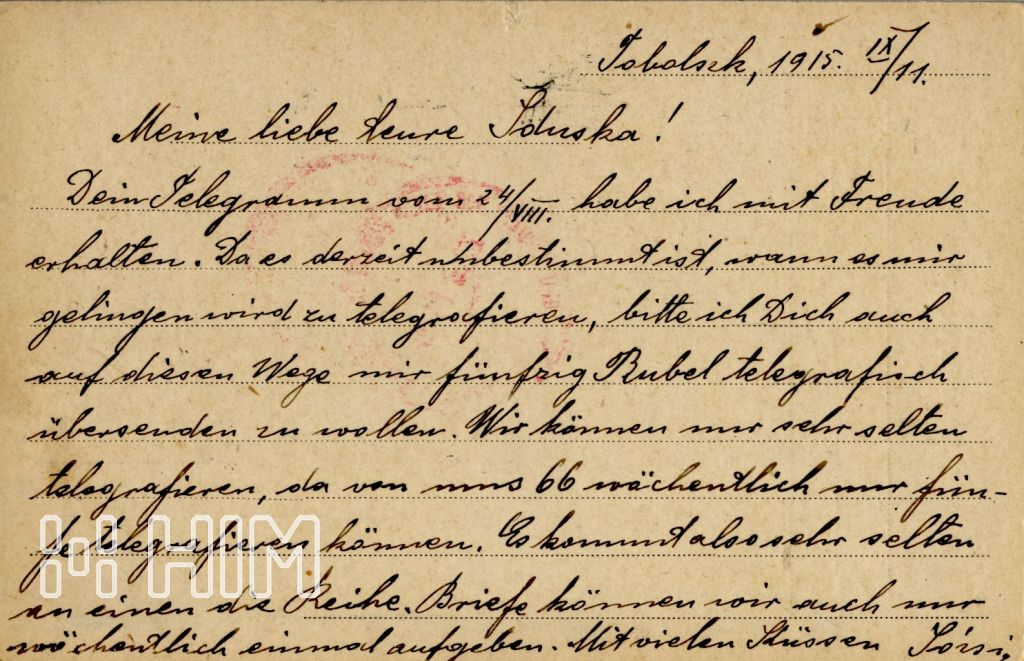 Tobolsk, 1915. IX/11.
Meine liebe teure Iduska!
Dein Telegramm vom 24/VIII. habe ich mit Freude
erhalten. Da es derzeit unbestimmt ist, wann es mir
gelingen wird zu telegrafieren, bitte ich Dich auch
auf diesen Wege mir fünfzig Rubel telegrafisch
übersenden zu wollen. Wir können nur sehr selten
telegrafieren, da von uns 66 wöchentlich nur fün-
fe telegrafieren können. Es kommt also sehr selten
an einen die Reihe. Briefe können wir auch nur
wöchentlich einmal aufgeben. Mit vielen Küssen
HIM